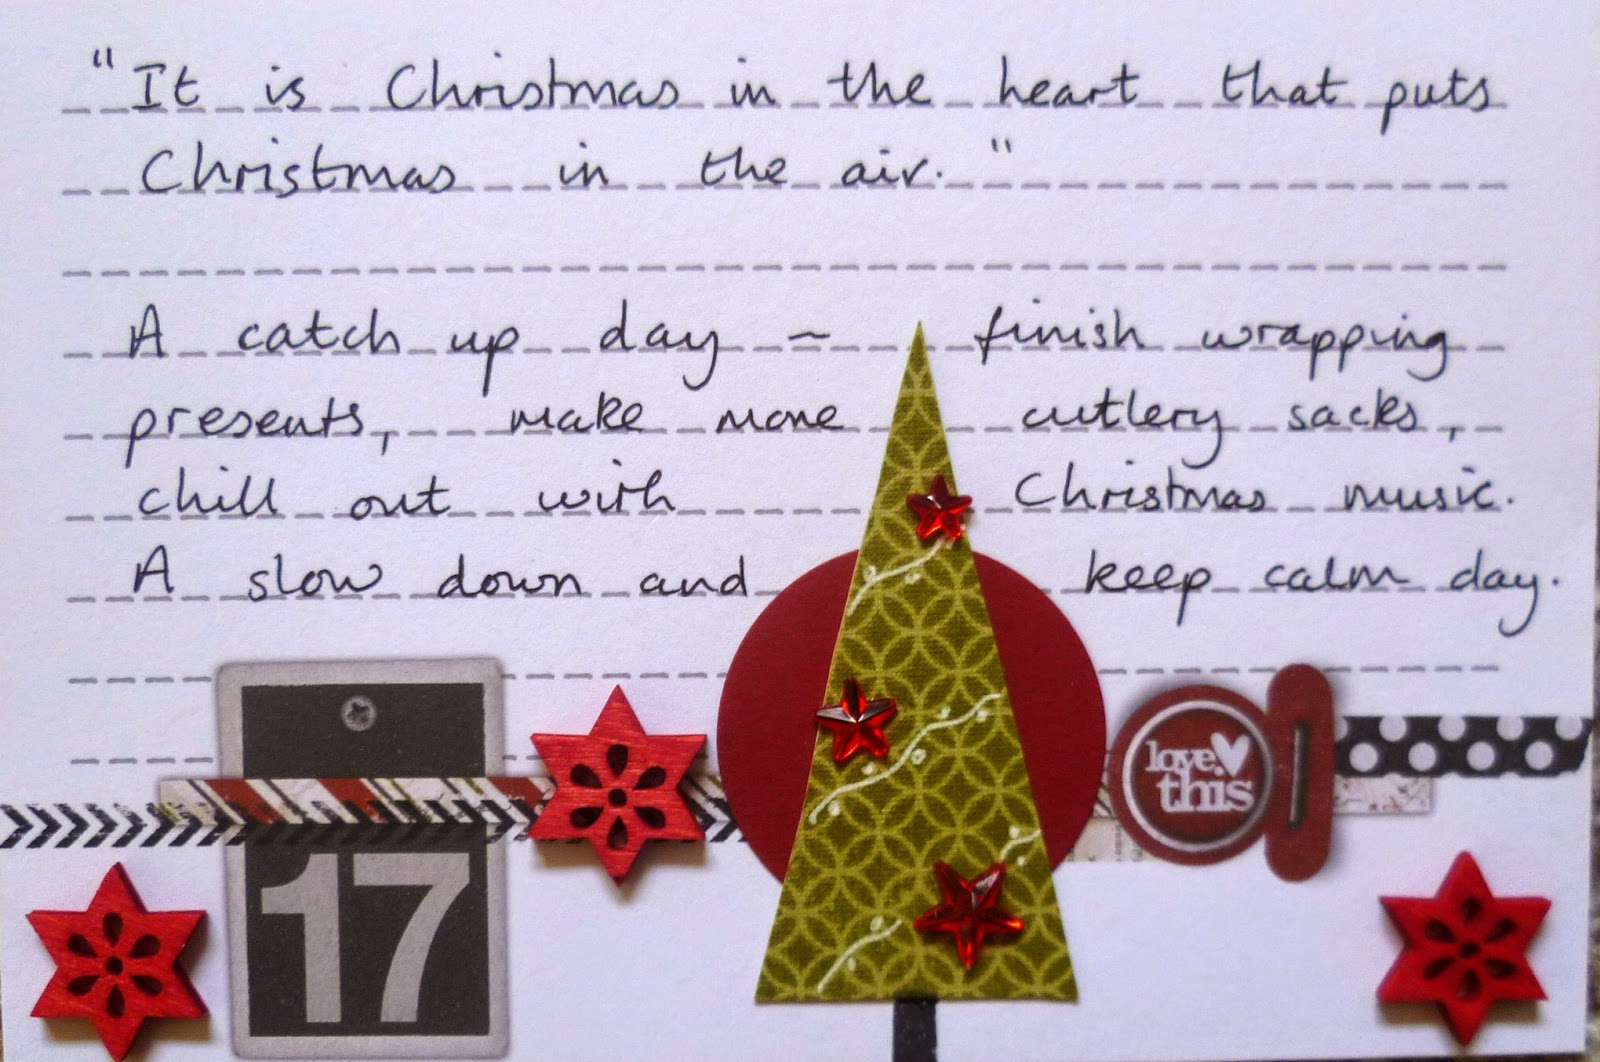 "It is Christmas in the heart that puts
Christmas in the air."
A catch up day ~ finish wrapping
presents, make more cutlery sacks,
chill out with Christmas music.
A slow down and keep calm day.
17
love
this